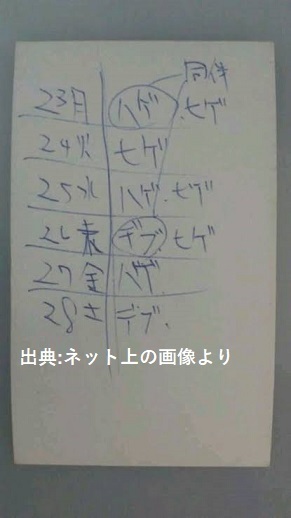 同伴
23月 ハゲ.ヒゲ
24火 ヒゲ
25水 ハゲ.ヒゲ
26木 デブ.ヒゲ
27金 ハゲ
28土 デブ.
出典:ネット上の画像より